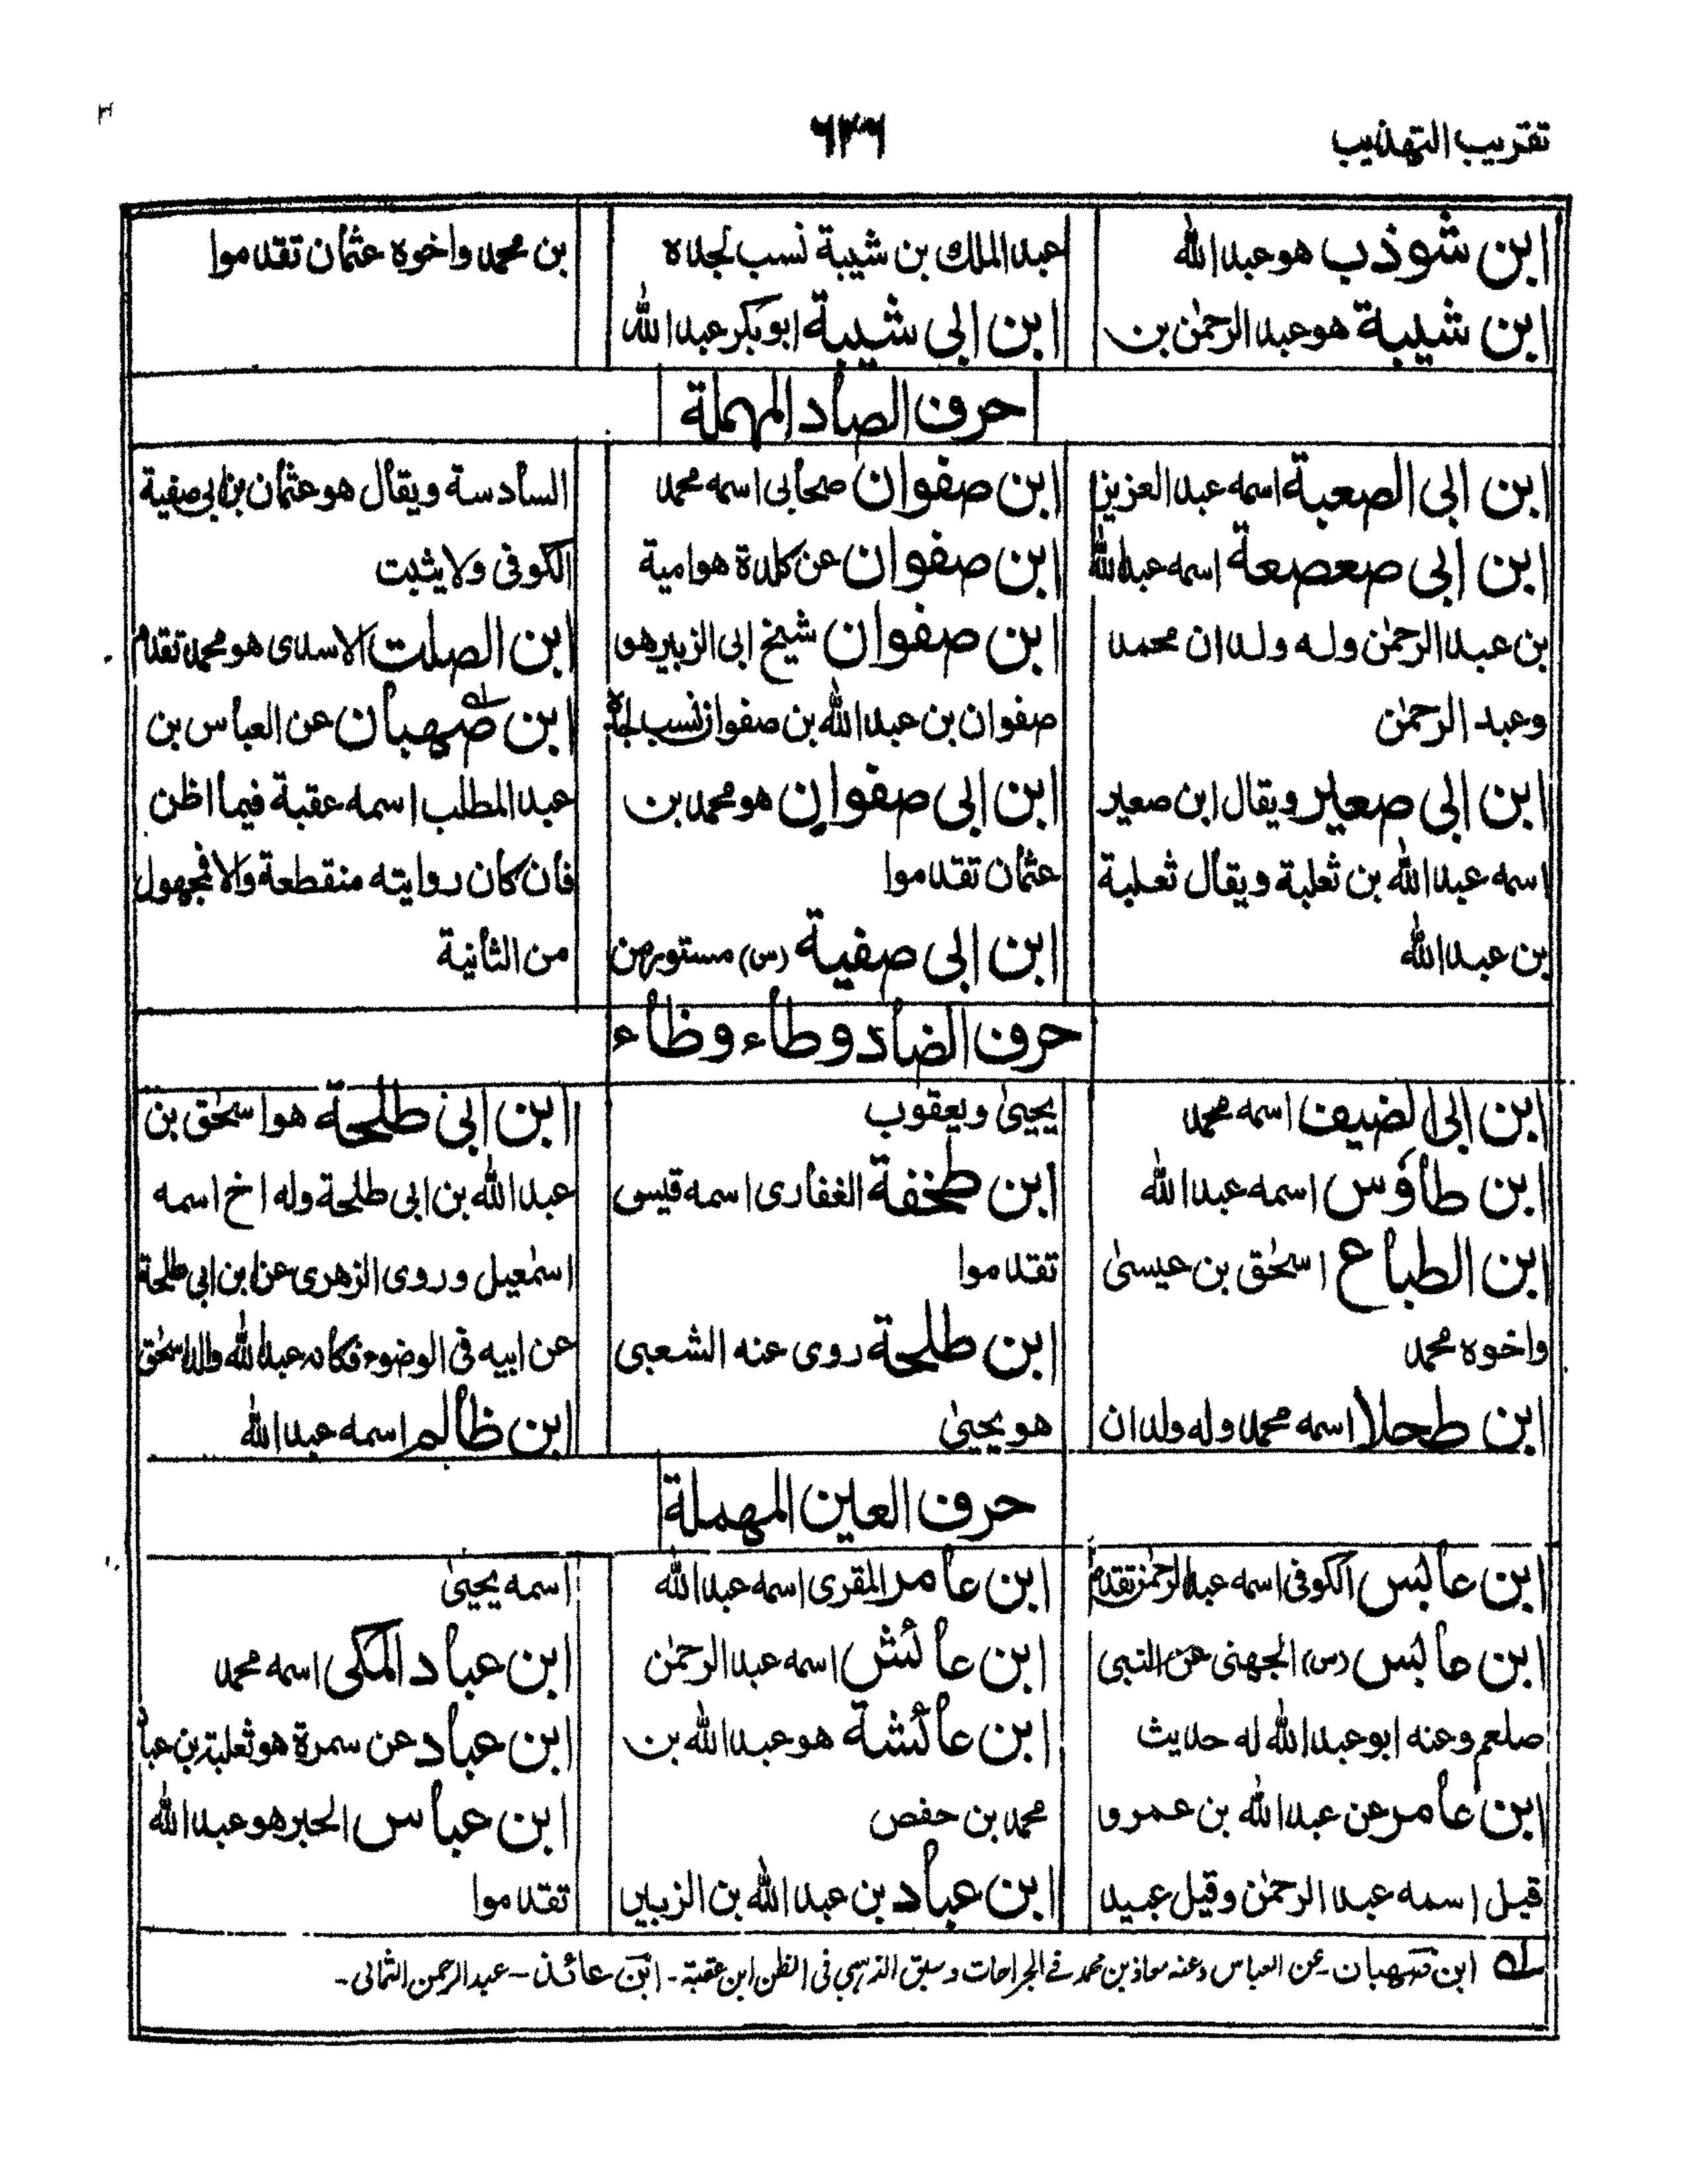 تقريب التهذيب
٦٣٦
ابن شوذب هو عبد الله
ابن شيبة هو عبد الرحمٰن بن
عبد الملك بن شيبة نسب لجده
ابن ابى شيبة ابو بكر عبد الله
بن محمد واخوه عثمان تقدموا
حرف الصاد المهملة
ابن ابى الصعبة اسمه عبد العزيز
ابن ابى صعصعة اسمه عبد الله
بن عبد الرحمٰن وله ولدان محمد
وعبد الرحمٰن
ابن ابى صعير ويقال ابن صعير
اسمه عبد الله بن ثعلبة ويقال ثعلبة
بن عبد الله
ابن صفوان صحابى اسمه محمد
ابن صفوان عن كلدة هو امية
ابن صفوان شيخ ابى الزبير هو
صفوان بن عبد الله بن صفوان نسب لجده
ابن ابى صفوان هو محمد بن
عثمان تقدموا
ابن ابى صفية (س) مستور من
السادسة ويقال هو عثمان بن ابى صفية
الكوفى ولا يثبت
ابن الصلت الاسدى هو محمد تقدم
ابن صهبان عن العباس بن
عبد المطلب اسمه عقبة فيما اظن
فان كان روايته منقطعة والا فمجهول
من الثانية
حرف الضاد وطاء وظاء
ابن ابى الضيف اسمه محمد
ابن طاؤس اسمه عبد الله
ابن الطباع اسحٰق بن عيسىٰ
واخوه محمد
ابن طحلا اسمه محمد وله ولدان
يحيىٰ ويعقوب
ابن طخفة الغفارى اسمه قيس
تقدموا
ابن طلحة روى عنه الشعبى
هو يحيىٰ
ابن ابى طلحة هو اسحٰق بن
عبد الله بن ابى طلحة وله اخ اسمه
اسمٰعيل وروى الزهرى عن ابن ابى طلحة
عن ابيه فى الوضوء فكانه عبد الله والد اسحٰق
ابن ظالم اسمه عبد الله
حرف العين المهملة
ابن عابس الكوفى اسمه عبد الرحمٰن تقدم
ابن عابس (س) الجهنى عن النبى
صلعم وعنه ابو عبد الله له حديث
ابن عامر عن عبد الله بن عمرو
قيل اسمه عبد الرحمٰن وقيل عبيد
ابن عامر المقرى اسمه عبد الله
ابن عائش اسمه عبد الرحمٰن
ابن عائشة هو عبد الله بن
محمد بن حفص
ابن عباد بن عبد الله بن الزبير
اسمه يحيىٰ
ابن عباد المكى اسمه محمد
ابن عباد عن سمرة هو ثعلبة بن عباد
ابن عباس الحبر هو عبد الله
تقدموا
سله ابن صهبان - عن العباس وعنه معاذ بن محمد فى الجراحات وسبق الذهبى فى الظن ابن عقبة - ابن عائذ - عبد الرحمن الثمالى -